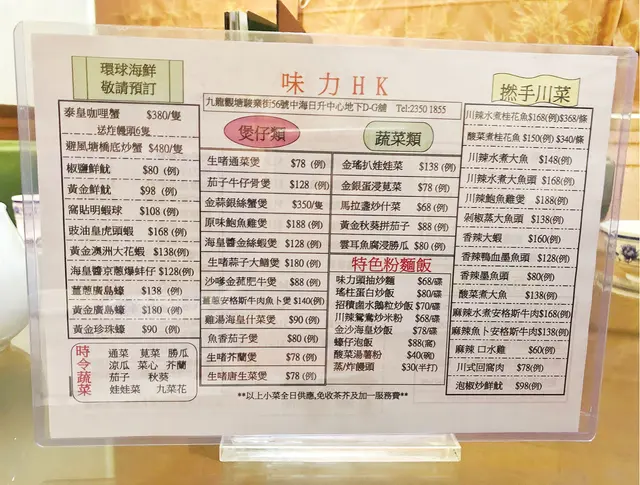 環球海鮮
敬請預訂
味力HK
九龍觀塘駿業街56號中海日升中心地下D-G舖 Tel:2350 1855
撚手川菜
泰皇咖哩蟹 $380/隻
送炸饅頭6隻
避風塘橋底炒蟹 $480/隻
椒鹽鮮魷 $80 (例)
黃金鮮魷 $98 (例)
窩貼明蝦球 $108 (例)
豉油皇虎頭蝦 $168 (例)
黃金澳洲大花蝦 $138(例)
海皇醬京蔥爆蚌仔 $128(例)
薑蔥廣島蠔 $138 (例)
黃金廣島蠔 $180 (例)
黃金珍珠蠔 $90 (例)
時令蔬菜
通菜 莧菜 勝瓜
涼瓜 菜心 芥蘭
茄子 秋葵
娃娃菜 九菜花
煲仔類
生啫通菜煲 $78 (例)
茄子牛仔骨煲 $128 (例)
金蒜銀絲蟹煲 $350/隻
原味鮑魚雞煲 $188 (例)
海皇醬金絲蝦煲 $128 (例)
生啫蒜子大鱔煲 $180 (例)
沙嗲金菰肥牛煲 $88 (例)
薑蔥安格斯牛肉魚卜煲 $140(例)
雞湯海皇什菜煲 $90 (例)
魚香茄子煲 $80 (例)
生啫芥蘭煲 $78 (例)
生啫唐生菜煲 $78 (例)
蔬菜類
金瑤扒娃娃菜 $138 (例)
金銀蛋浸莧菜 $78 (例)
馬拉盞炒什菜 $68 (例)
黃金秋葵拼茄子 $88 (例)
雲耳魚腐浸勝瓜 $80 (例)
特色粉麵飯
味力頭抽炒麵 $68/碟
瑤柱蛋白炒飯 $80/碟
招積鹵水鵝粒炒飯 $70/碟
川辣鴛鴦炒米粉 $68/碟
金沙海皇炒飯 $78/碟
蠔仔泡飯 $88(窩)
酸菜湯薯粉 $40(碗)
蒸/炸饅頭 $30(半打)
川辣水煮桂花魚$168(例)$368/條
酸菜煮桂花魚$150(例) $340/條
川辣水煮大魚 $148(例)
川辣水煮大魚頭 $168(例)
川辣鮑魚雞煲 $188(例)
剁椒蒸大魚頭 $138(例)
香辣大蝦 $160(例)
香辣鴨血墨魚頭 $128(例)
香辣墨魚頭 $80(例)
酸菜煮大魚 $138(例)
麻辣水煮安格斯牛肉$168(例)
麻辣魚卜安格斯牛肉$138(例)
麻辣 口水雞 $60(例)
川式回窩肉 $78(例)
泡椒炒鮮魷 $98(例)
**以上小菜全日供應,免收茶芥及加一服務費**